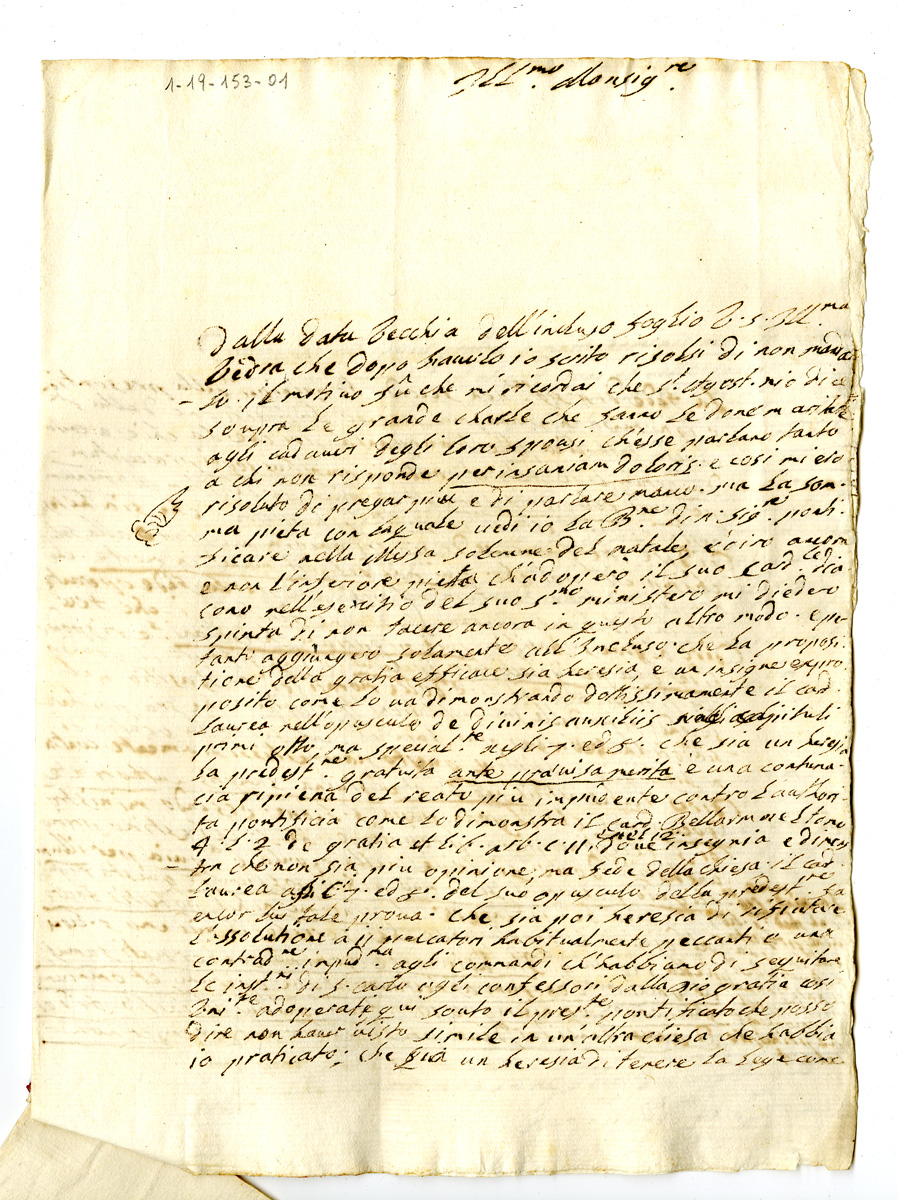 1-19-153-01
Ill.mo Monsig.re
Dalla data vecchia dell'incluso foglio V. S. Ill.ma
vedra che dopo haverlo io scrito risolsi di non
lo. il motivo fû che mi ricordai che S.t Agost. mio dice
sovpra le grande charle che fanno le done maritate
agli cadaveri degli loro sposi ch'esse parlano tanto
a chi non risponde per insaniam doloris. e cosi mi ero
risoluto di pregar piu e di parlare manco. ma la som-
ma pieta con laquale vedi io la B.ne di n. sig.re ponti-
ficare nella Messa solenne del natale, ancora
e non l'inferiore pieta ch'adoperò il suo Card.le dia
cono nell'esercitio del suo S.mo ministero mi diedero
spinta di non tacere ancora in questo altro modo. e per
tanto aggiungero solamente all'Incluso. che la proposi
tione della gratia efficace sia heresia, e un insigne spro
posito come lo va dimonstrando dottissimamente il card.
Laurea nell'opusculo de divinis auxiliis capituli
primi otto, ma special.te negli 7. ed 8. che sia un heresia
la predest.ne gratuita ante prævisa merita e una contuma-
cia ripiena del reato piu impudente contro l'authori-
ta pontificia come lo dimonstra il card. Bellarmino tomo
4. l. 2 de gratia et lib. arb. c. 11. e nel 12. dove insegnia e dimons
tra che non sia piu opinione, ma fede della chiesa. il car.
Laurea c. 7. ed 8. del suo opusculo della predest.ne fa
encor lui tale prova. che sia poi heresia di rifiutare
l'assolutione à ii peccatori habitualmente peccanti o una
contrad.ne impud.ma agli commandi ch'habbiamo di seguitare
le inst.ni di S. Carlo agli confessori dalla Dio gratia cosi
adoperate qui souto il pres.te pontificato che posso
dire non haver visto simile in un'altra chiesa che habbia
io praticato; che sia un heresia di tenere la lege come